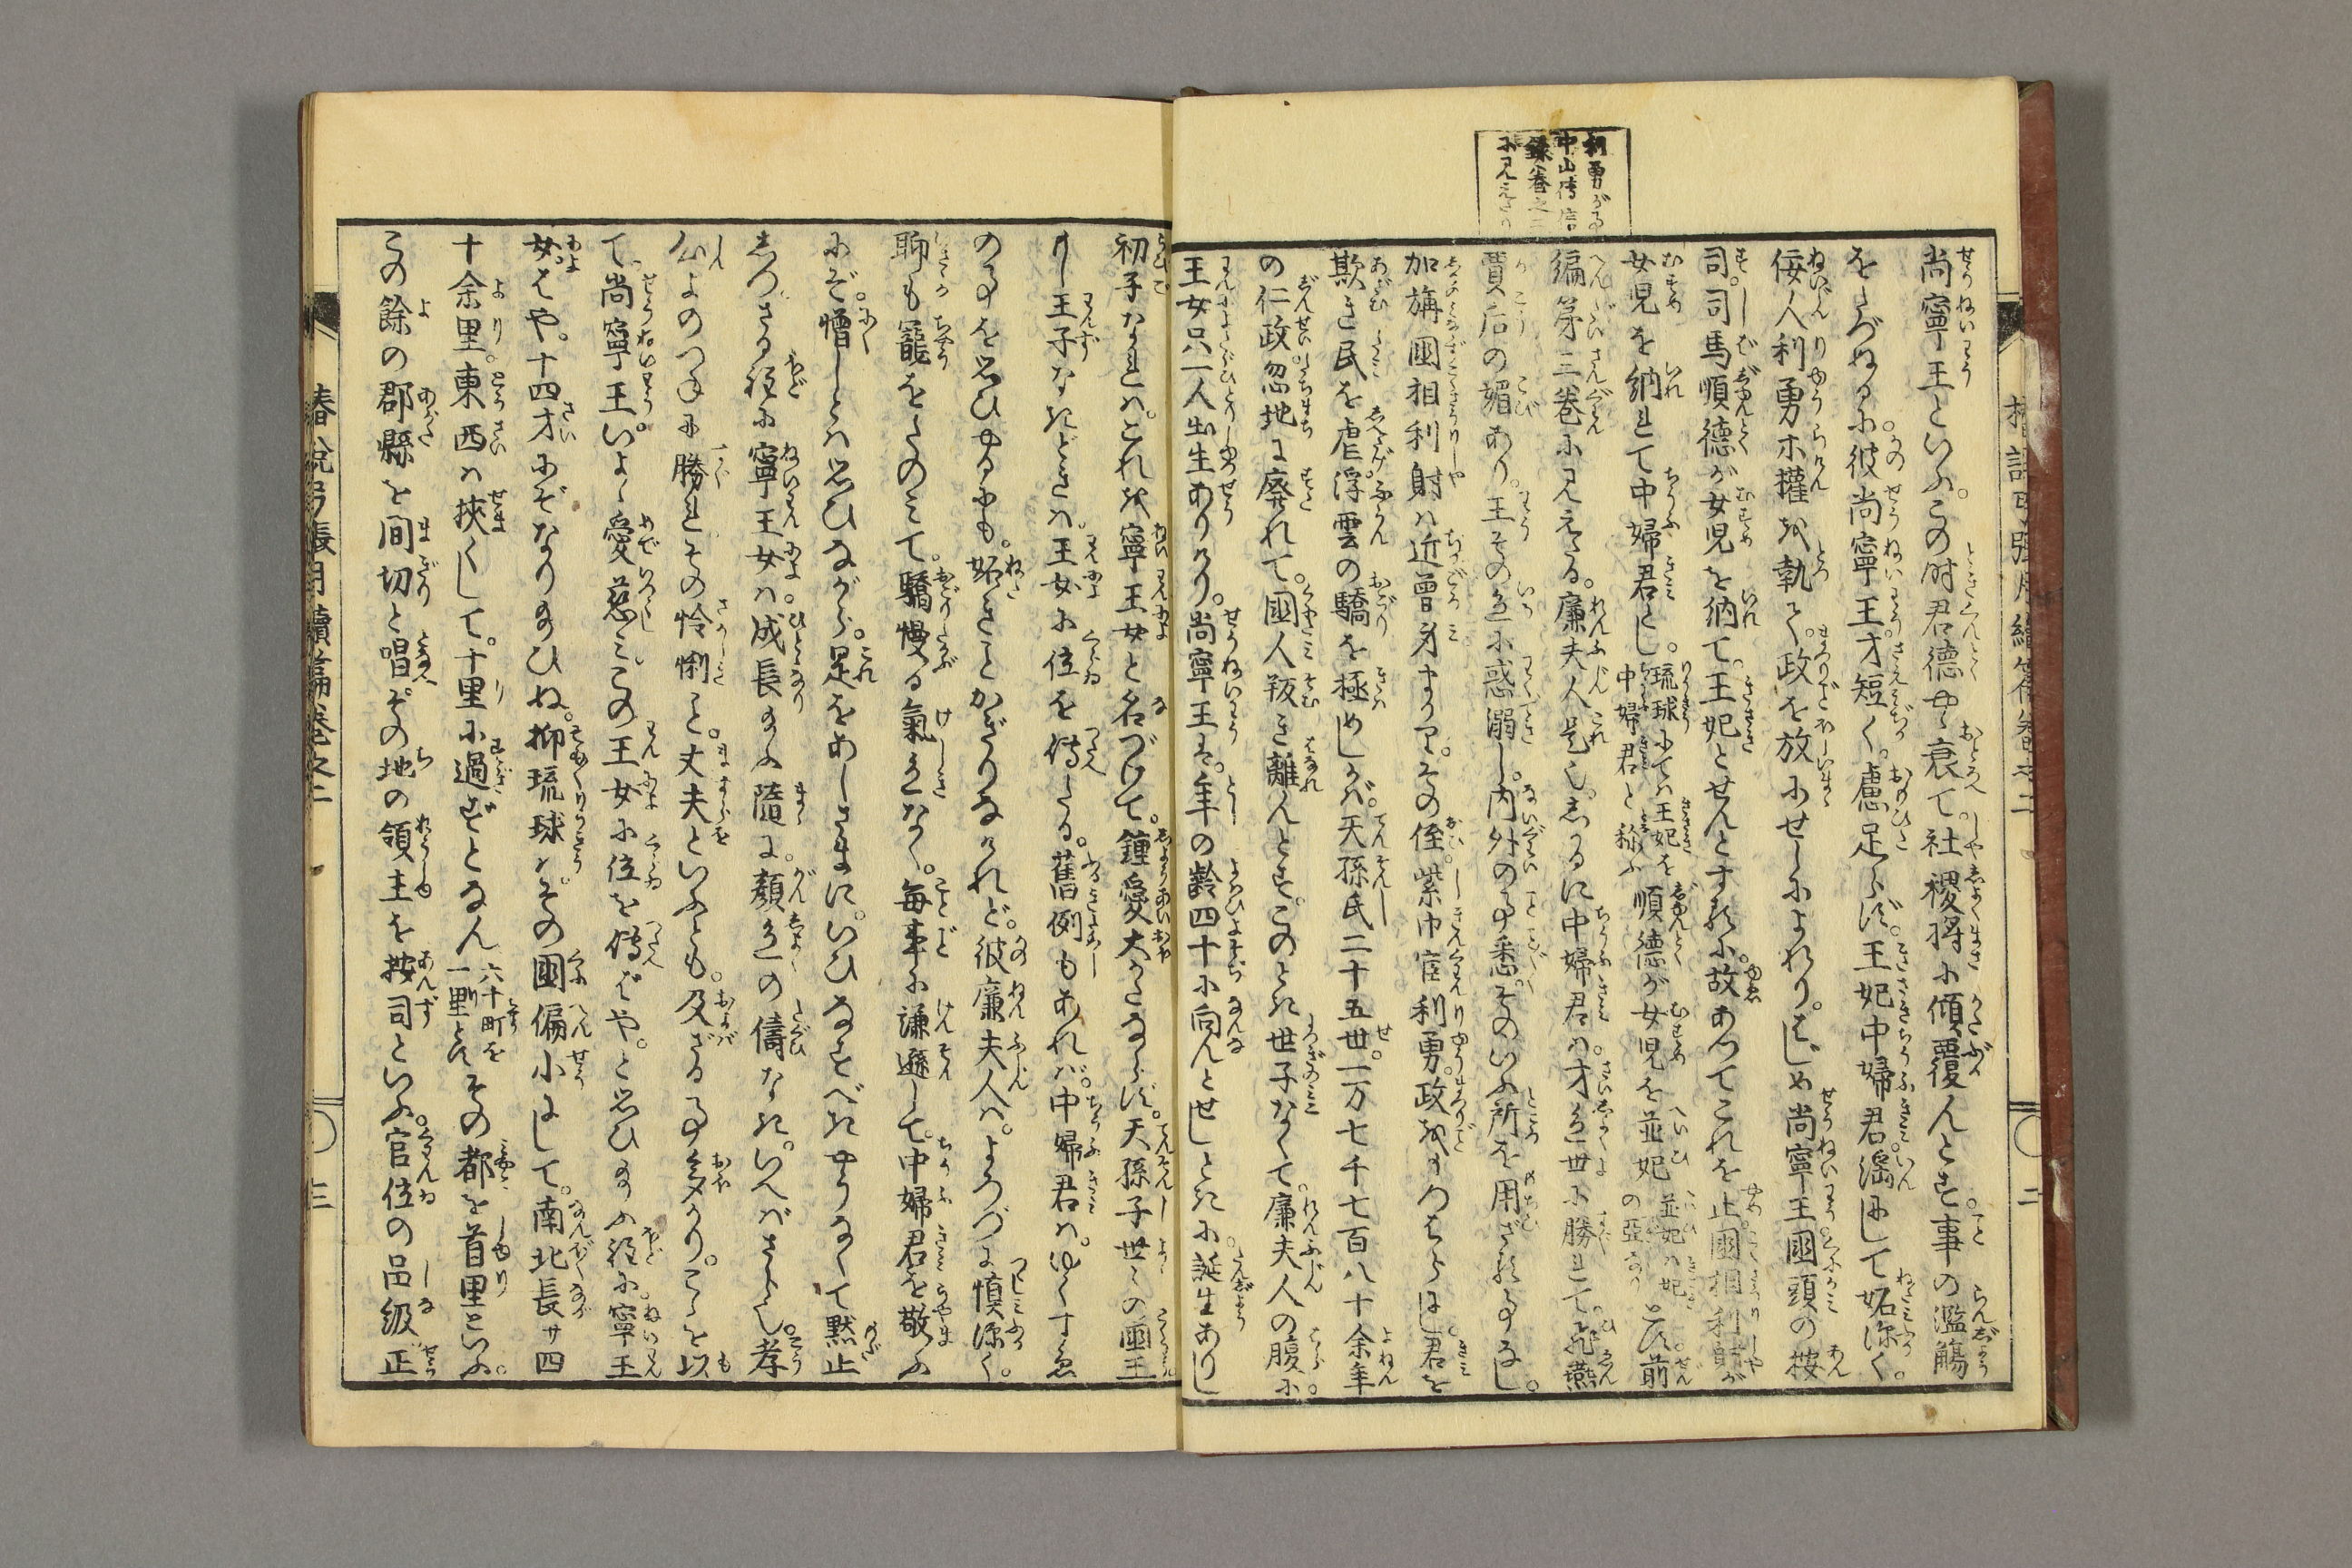 利勇がる
中山傳信
録巻之
に見えたり
尚寧王といふ。この時君徳やゝ衰て。社稷将に傾覆んとす。事の濫觴
をたづぬるに。彼尚寧王。才短く。慮足らず。王妃中婦君。淫にして妬深く。
佞人利勇ホ權を執て。政を放にせしによれり。はじめ尚寧王。國頭の按
司。司馬順德が女児を納て。王妃とせんとするに。故あつてこれを止。國相利射が
女児を納れて中婦君とし。琉球にては王妃を中婦君と称ふ順德が女児を並妃並妃は妃の亞なりとす。前
編第三巻に見えたる。廉夫人是也。しかるに中婦君は。才色世に勝れて。飛燕
賈后の媚あり。王その色に惑溺し。内外の事悉。そのいふ所を用ざる事なし。
加旃國相利射は近曾身まかり。その侄。紫巾官利勇。政を
欺き民を虐。浮雲の驕を極めしかば。天孫氏二十五世。一万七千七百八十余年
の仁政忽地に廃れて。國人叛き離んとす。このとき世子なくて。廉夫人の腹に。
王女只一人出生ありけり。尚寧王は。年の齢四十に向んとせしときに。誕生ありし
初子なれば。これを寧王女と名づけて。鍾愛大かたならず。天孫子世々の國王
りし王子なきときは。王女に位を傳たる。舊例もあれば。中婦君は。ゆくすゑ
の事を思ひやるにも。妬きことかぎりなけれど。彼廉夫人は。よろづに愼深く。
聊も寵をたのみて。驕慢る氣色なく。毎事に謙遜して。中婦君を敬ふ
にぞ。憎しとは思ひながら。是をあしざまに。いひなすべきやうなくて黙止
しつ。さる程に寧王女は。成長給ふ隨に。顔色の儔なき。いへばさら也。孝
心よのつねに勝れ。その怜悧こと。丈夫といふとも。及ざる事多かり。こゝを以
て。尚寧王。いよゝ愛慈みこの王女に位を傳ばや。と思ひ給ふ程に。寧王
女はや。十四才にぞなり給ひぬ。抑琉球は。その國偏小にして。南北長サ四
十余里。東西は挾くして。十里に過ずとなん六十町を一里とすその都を首里といふ。
この餘の郡縣を間切と唱。その地の領主を按司といふ。官位の品級正
椿説弓張月續篇巻之二
三